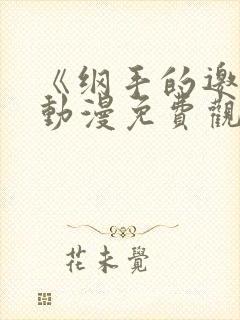 《纲手的邀
動漫免費觀
花未覺